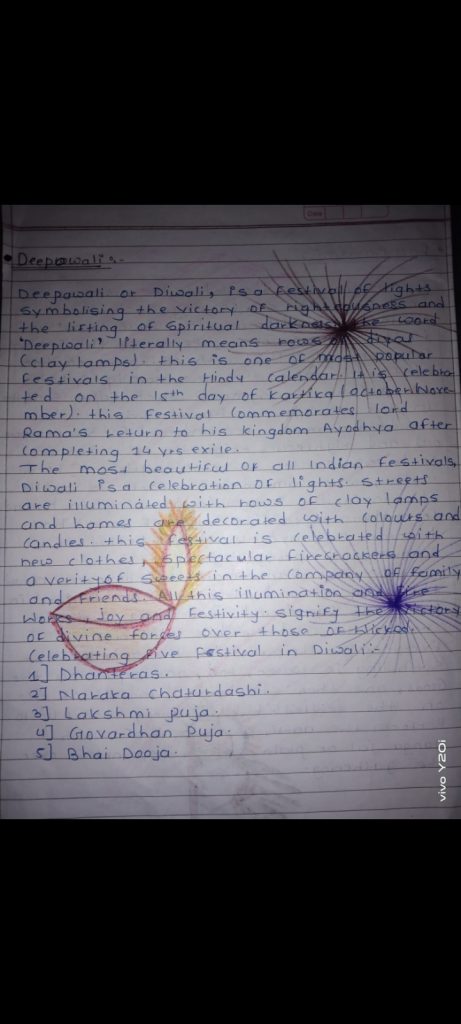 Date
Deepawali :-
Deepawali or Diwali, is a Festival of lights
symbolising the victory of righteousness and
the lifting of spiritual darkness. The word
'Deepwali' literally means rows of diyas
(clay lamps). this is one of most popular
Festivals in the Hindy Calendar. It is celebra-
ted on the 15th day of Kartika (october/Nove-
mber). this Festival Commemorates lord
Rama's return to his kingdom Ayodhya after
Completing 14 yrs exile.
The most beautiful of all Indian Festivals,
Diwali is a celebration of lights. streets
are illumináted with rows of clay lamps
and homes are decorated with colours and
candles. this festival is celebrated with
new clothes, spectacular firecrackers and
a verity of sweets in the company of family
and Friends. All this illumination and fire
works, Joy and Festivity. signify the victory
of divine forces over those of wicked.
Celebrating Five Festival in Diwali :-
1] Dhanteras.
2] Naraka Chaturdashi.
3] Lakshmi puja.
4] Govardhan Puja.
5] Bhai Dooja.
vivo Y20i